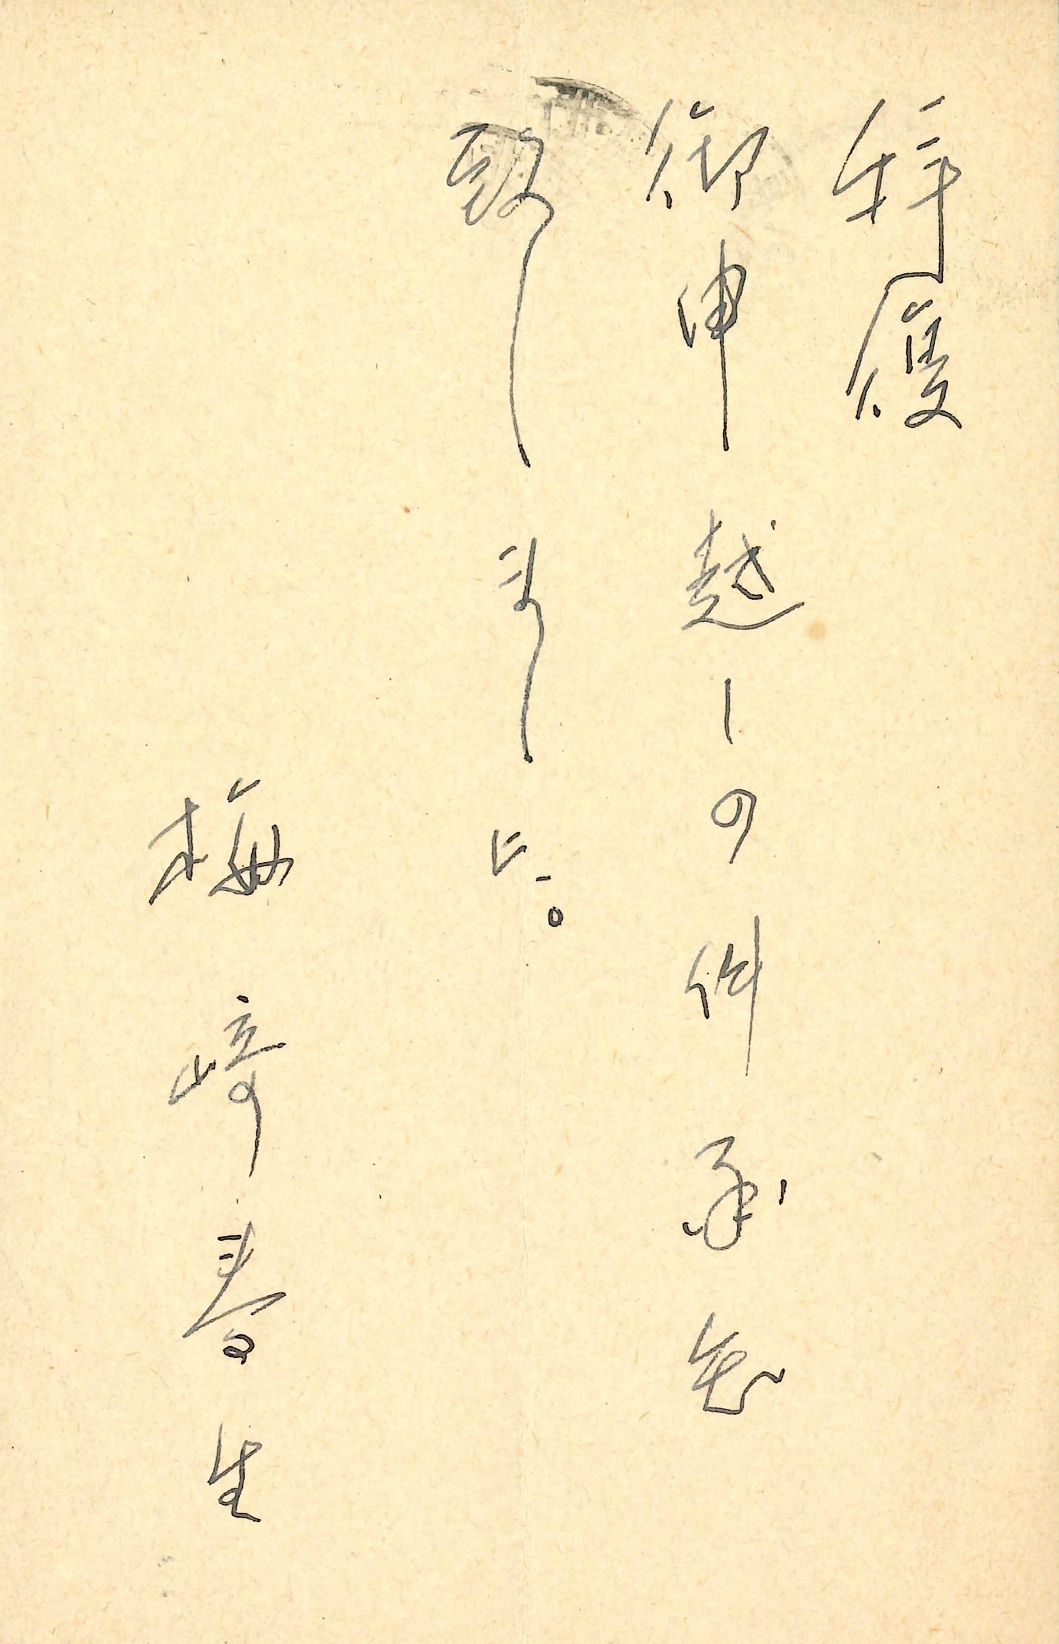 拝復
御申越しの件承知
致しました。
梅崎春生